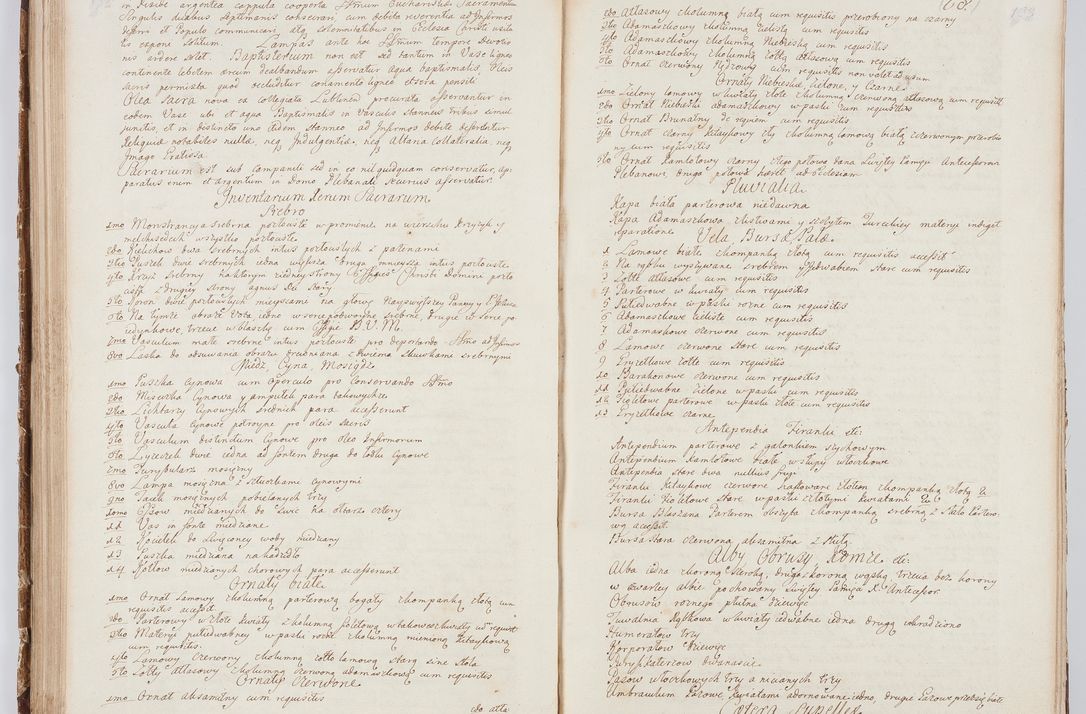 in Pixide argentea cuppula cooperta SSmum Eucharistiae Sacramentum
Singulis duabus Septimanis consecrari, cum debita reverentia ad Infirmos
deferri et Populo communicari, atq solemnitatibus in Ecclesia Christi usita
tis expone solitum. Lampas ante hoc SSmum tempore Devotio
nis ardere solet. Baptisterium non est sed tantum in Vase ligneo
continente lebetem aereum dealbandum asservatur aqua baptismalis, Oleis
sacris permixta quod occluditur conamento ligneo et sera pensili
Olea Sacra nova ex Collegiata Lublinen procurata asservantur in
eodem Vase ubi et aqua Baptismalis in Vasculis Stanneis tribus simul
junctis, et in distincto uno itidem Stanneo ad Infirmos debite deferditur
Reliquiae notabiles nullae, neq Indulgentiae, neq Altaria Collateralia, neq
Imago Gratiosa
Sacrarium est sub campanili sed in eo nil quidquam conservatur, ap
paratus enim et argentum in Domo Plebanali securius asservatur.
Inventarium Rerum Sacrarum
Srebro
1mo Monstrancya srebrna pozłocista w promienie na wierzchu krzyżyk y
melchisedech wszystko pozłociste
2do Kielichow dwa srebrnych intus pozłocistych z patenami
3tio Puszek dwie srebrnych iedna większa druga mnieysza intus pozłociste
4to Krzyż srebrny na ktorym z iedney strony Effigies Christi Domini pozło
cista z drugiey strony agnus Dei stary
5to Koron dwie pozłocistych mieyscami na głowę Nayswiętszey Panny y P. Jezusa
6to Na tymże obrazie Vota iedno w serce podwoyne srebrne, drugie w serce po
iedynkowe, trzecie w blaszkę cum Effigie B.V.M.
7mo Vasculum małe srebrne intus pozłociste pro deportando SSmo ad Infirmos
8vo Laska do obsuwania obrazu drewniana z dwiema skuwkami srebrnymi
Miedz, Cyna, Mosiądz
1mo Puszka Cynowa cum operculo pro conservando SSmo
2do Miseczka Cynowa y ampułek para takowychże
3tio Lichtarzy Cynowych srednich para accesserunt
4to Vascula Cynowe potroyne pro oleis sacris
5to Vasculum distinctum Cynowe pro Oleo Infirmorum
6to Łyżeczek dwie iedna ad fontem druga do łodki Cynowe
7mo Turybularz mosiężny
8vo Lampa mosiężna z sztuczkami Cynowymi
9no Tacek mosiężnych pobielanych trzy
10mo Cisow miedzianych do swic na ołtarz cztery
11 Vas in fonte miedziane
12 Kociełek do Swięconey wody miedziany
13 Puszka miedziana na kadzidło
14 Kotłow miedzianych chorowych para accesserunt
Ornaty białe
1mo Ornat Lamowy kolumną parterową bogaty z kompanką złotą cum
requisitis accessit.
2do Parterowy w złote kwiaty z kolumną fioletową w takoweż kwiaty cum requisit
3tio Materyi pułiedwabney w paski rozne kolumną mienioną kitaykową
cum requisitis.
4to Lamowy Czerwony kolumną żółto lamową starą sine stola
5to Zołty atłasowy kolumną czerwoną adamaszkową cum requisitis
Ornaty Czerwone
1mo Ornat aksamitny cum requisitis
2do atła
2do Atłasowy kolumną białą cum requisitis przerobiony na czarny
3tio Adamaszkowy kolumną cielistą cum requisitis
4to Adamaszkowy kolumną Niebieską cum requisitis
5to Adamaszkowy kolumną żółtą atłasową cum requisitis
6to Ornat Czerwony Nędzowy cum requisitis non valet ad usum
Ornaty Niebieskie, zielone, y Czarne
1mo Zielony lamowy w kwiaty złote kolumną czerwoną atłasową cum requisit
2do Ornat Niebieski adamaszkowy w paski cum requisitis
3tio Ornat Brunatny de requiem cum requisitis
4to Ornat czarny kitaykowy cały kolumną lamową białą czerwonym przerobio
ny cum requisitis
5to Ornat kamlotowy czarny czego połowa dana Swięty Pamięci Antecessorowi
Plebanowi, druga połowa haeret ad Ecclesiam
Pluvialia
Kapa biała parterowa niedawna
Kapa Adamaszkowa z listwami y szczytem Tureckiey materyi indiget
reparatione Vela, Bursae Pallae
1 Lamowe białe z kompanką złotą cum requisitis accessit
2 Na rąbku wyszywane srebrem y jedwabiem stare cum requisitis
3 Zołte atłasowe cum requisitis
4 Parterowe w kwiaty cum requisitis
5 Pułiedwabne w paski rozne cum requisitis
6 Adamaszkowe cieliste cum requisitis
7 Adamaszkowe czerwone cum requisitis
8 Lamowe czerwone stare cum requisitis
9 Gryzetkowe żołte cum requisitis
10 Barakanowe czerwone cum requisitis
11 Pułiedwabne zielone w paski cum requisitis
12 Fioletowe parterowe w paski złote cum requisitis
13 Gryzetkowe czarne
Antependia Firanki etc.
Antependium parterowe z galonkiem szychowym
Antependium kamlotowe białe wstęgi włoczkowe
Antependia stare dwa nullius frugi
Firanki Kitaykowe czerwone haftowane złotem z kompanką złotą 2
Firanki Fioletowe stare w paski z złotymi kwiatami 2
Bursa Blaszana Parterem obszyta z kompanką srebrną z Stułą Partero
wą accessit
Bursa stara czerwona aksamitna z Stułą
Alby Obrusy Komże etc.
Alba iedna z koroną szeroką, druga z koroną wąską trzecia bez korony
w czwartey albie pochowany Swiętey Pamięci X. Antecessor
Obrusow roznego płutna dziewięć
Tuwalnia Rąbkowa w kwiaty iedwabne iedna drugą ukradziono
Humerałow trzy
Korporałow dziewięć
Puryfikaterzow dwanascie
Pasow włoczkowych trzy a nicianych trzy
Umbraculum Gazowe kwiatami adornowane iedno, drugie Gazowe przeszyć białe
Caetera Supellex